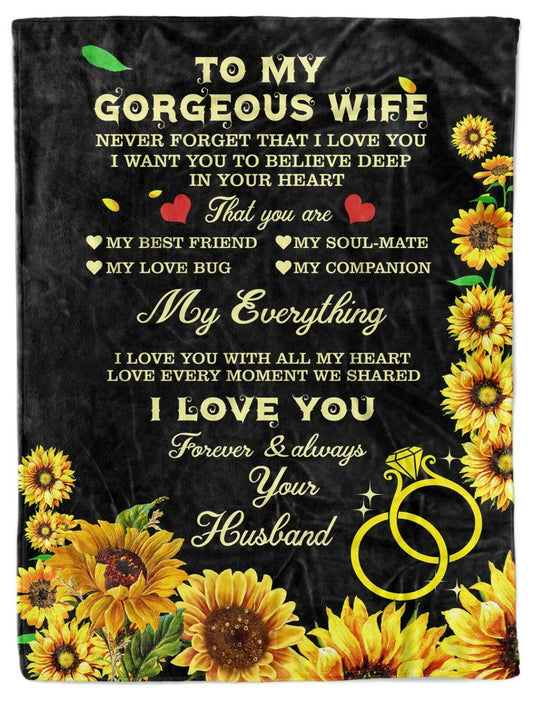 TO MY
GORGEOUS WIFE
NEVER FORGET THAT I LOVE YOU
I WANT YOU TO BELIEVE DEEP
IN YOUR HEART
That you are
MY BEST FRIEND MY SOUL-MATE
MY LOVE BUG MY COMPANION
My Everything
I LOVE YOU WITH ALL MY HEART
LOVE EVERY MOMENT WE SHARED
I LOVE YOU
Forever & always
Your
Husband